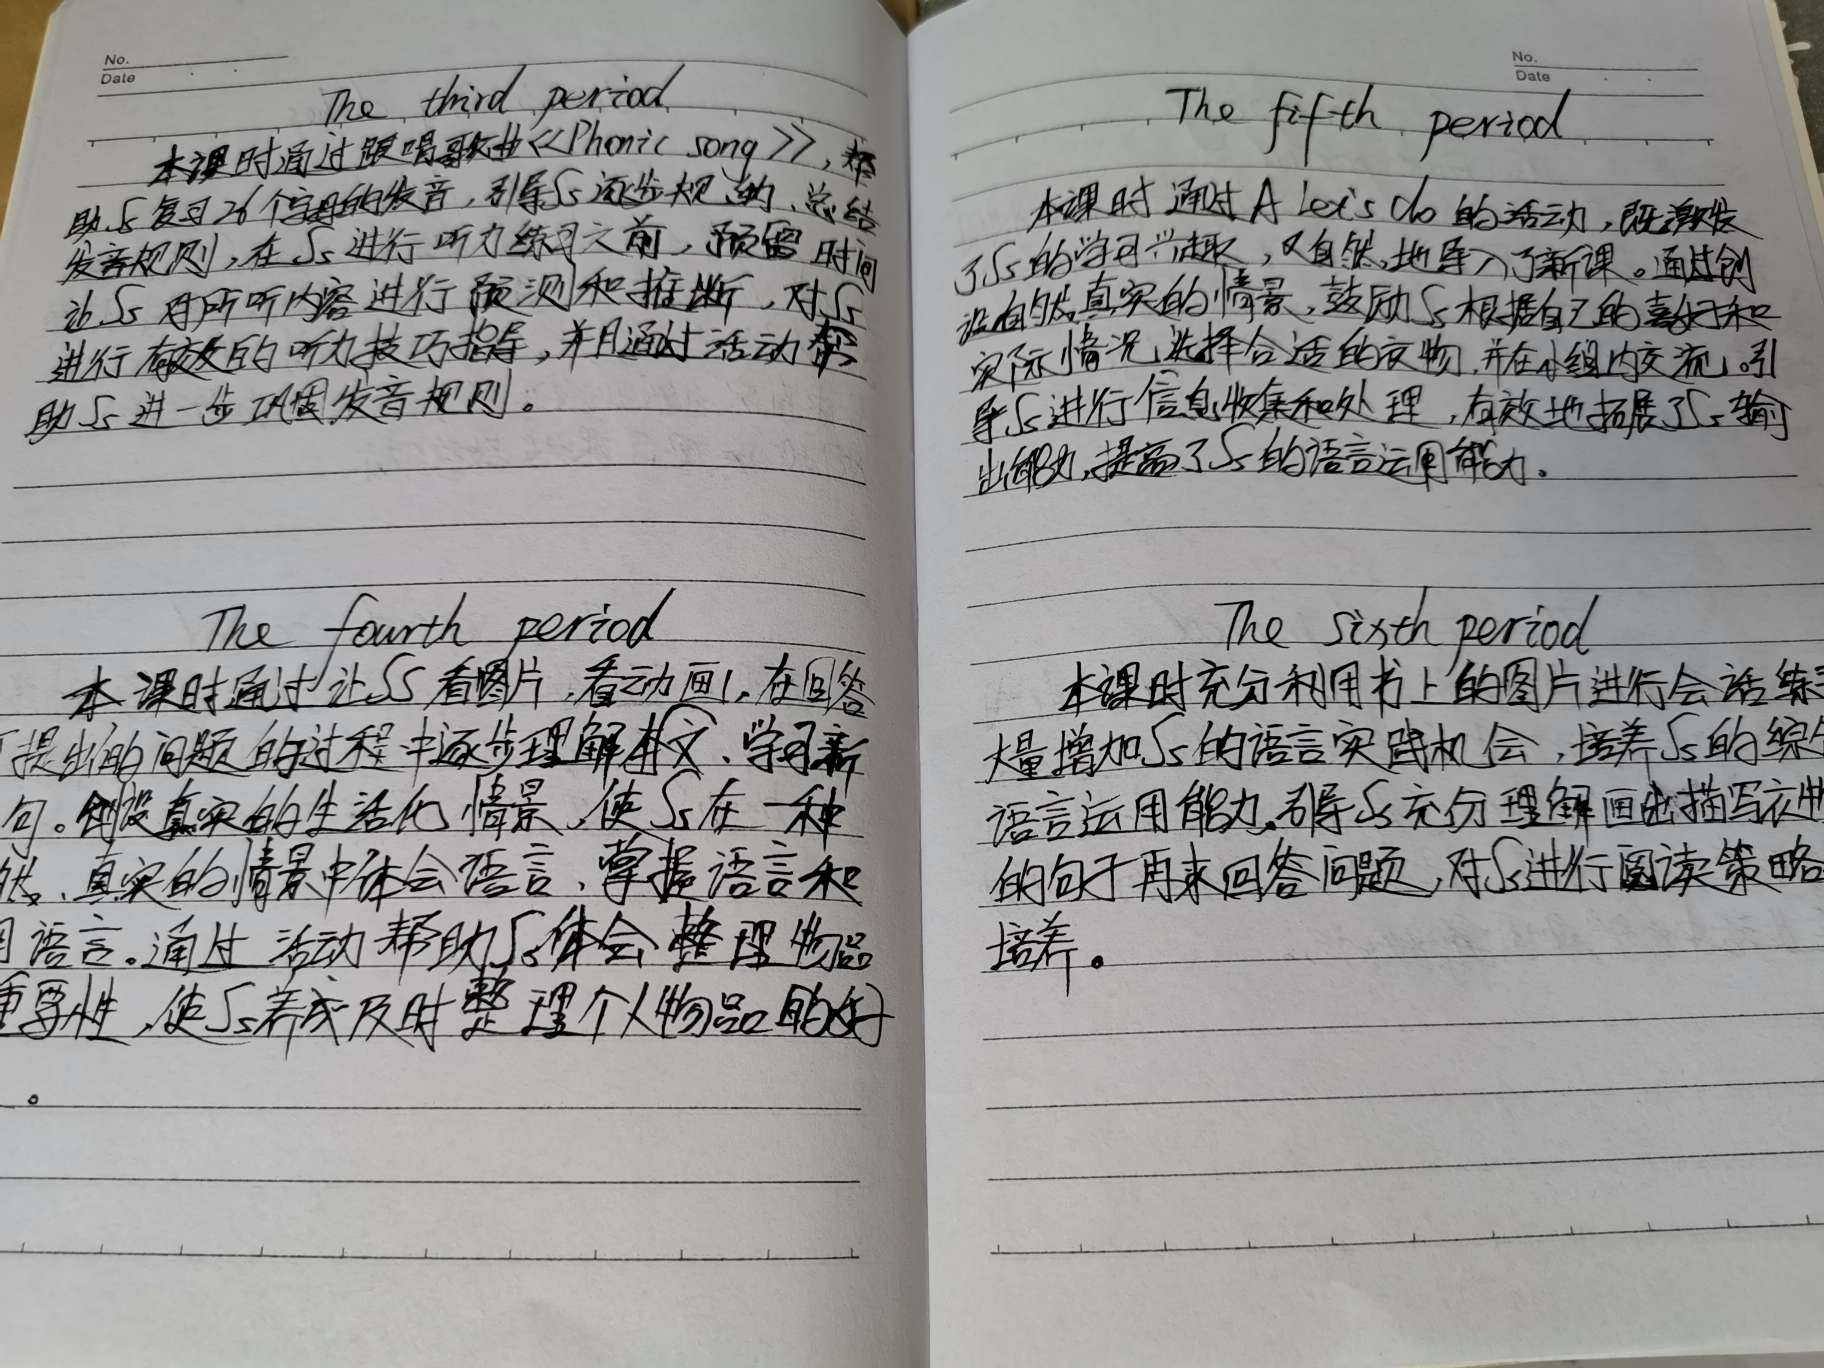 No.
Date
The third period
本课时通过跟唱歌曲《Phonic song》,帮
助Ss复习26个字母的发音,引导Ss逐步规纳、总结
发音规则,在Ss进行听力练习之前,预留时间
让Ss对所听内容进行预测和推断,对Ss
进行有效的听力技巧指导,并且通过活动帮
助Ss进一步巩固发音规则。
The fourth period
本课时通过让Ss看图片,看动画,在回答
提出的问题的过程中逐步理解课文、学习新
句。创设真实的生活化情景,使Ss在一种
然、真实的情景中体会语言、掌握语言和
用语言。通过活动帮助Ss体会整理物品
重要性,使Ss养成及时整理个人物品的好
。
No.
Date
The fifth period
本课时通过A Let's do的活动,既激发
了Ss的学习兴趣,又自然地导入了新课。通过创
设自然真实的情景,鼓励Ss根据自己的喜好和
实际情况选择合适的衣物,并在小组内交流。引
导Ss进行信息收集和处理,有效地拓展了Ss输
出能力,提高了Ss的语言运用能力。
The sixth period
本课时充分利用书上的图片进行会话练习
大量增加Ss的语言实践机会,培养Ss的综合
语言运用能力。引导Ss充分理解画出描写衣物
的句子再来回答问题,对Ss进行阅读策略
培养。